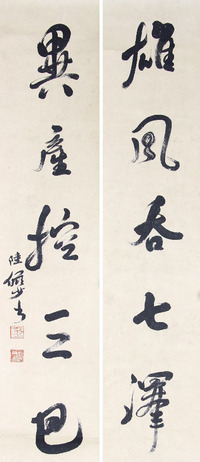 雄風吞七澤
異產控三巴
陸儼少書